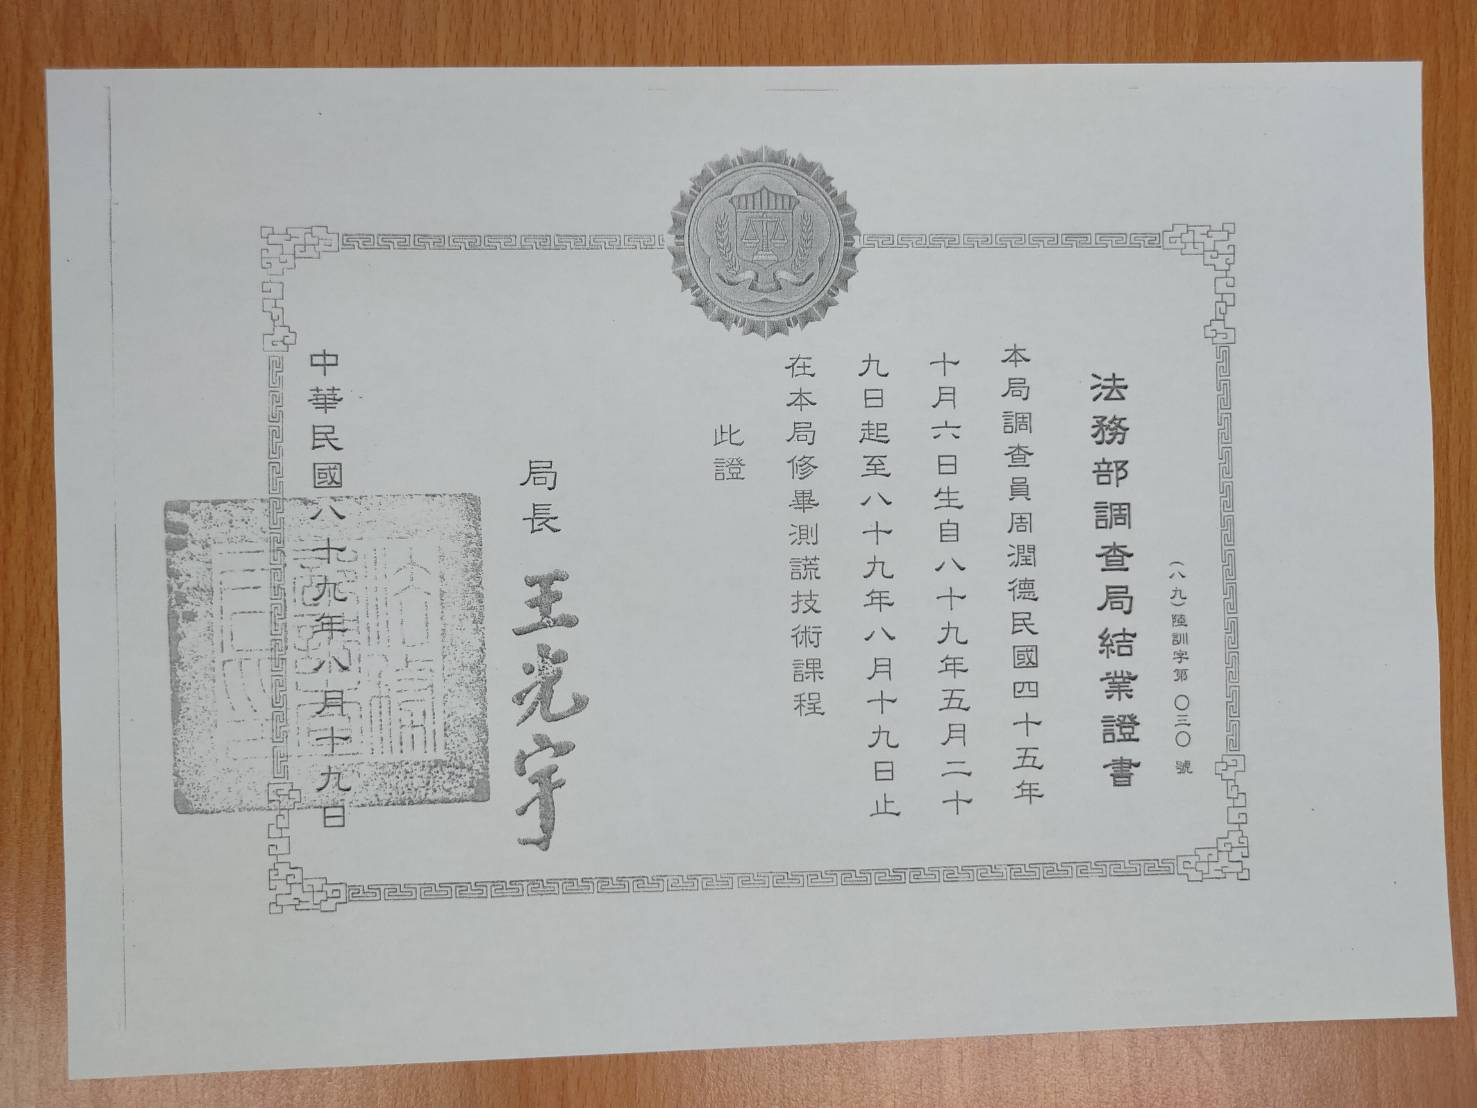 (八九)陸訓字第〇三〇號
法務部調查局結業證書
本局調查員周潤德民國四十五年
十月六日生自八十九年五月二十
九日起至八十九年八月十九日止
在本局修畢測謊技術課程
此證
局長 王光宇
中華民國八十九年八月十九日